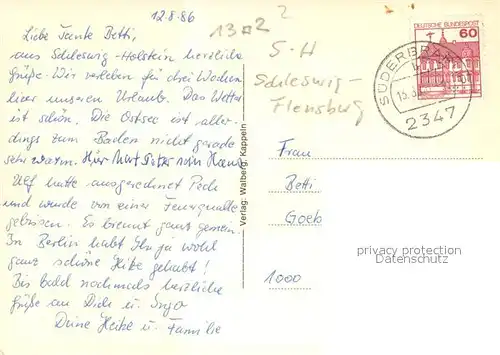 12.8.86
Liebe Tante Betti,
aus Schleswig-Holstein herzliche
Grüße. Wir verleben für drei Wochen
hier unseren Urlaub. Das Wetter
ist schön. Die Ostsee ist aller-
dings zum Baden nicht gerade
sehr warm.
Ulf hatte ausgerechnet Pech
und wurde von einer Feuerqualle
gebissen. Es brennt ganz gemein.
In Berlin habt Ihr ja wohl
ganz schöne Hitze gehabt!
Bis bald nochmals herzliche
Grüße an Dich u. Ingo
Deine Heike u. Familie
Verlag: Walberg, Kappeln
13 2 2
S-H
Schleswig-
Flensburg
DEUTSCHE BUNDESPOST
60
SÜDERBRARUP
2347
Frau
Betti
Goeb
1000
privacy protection
Datenschutz